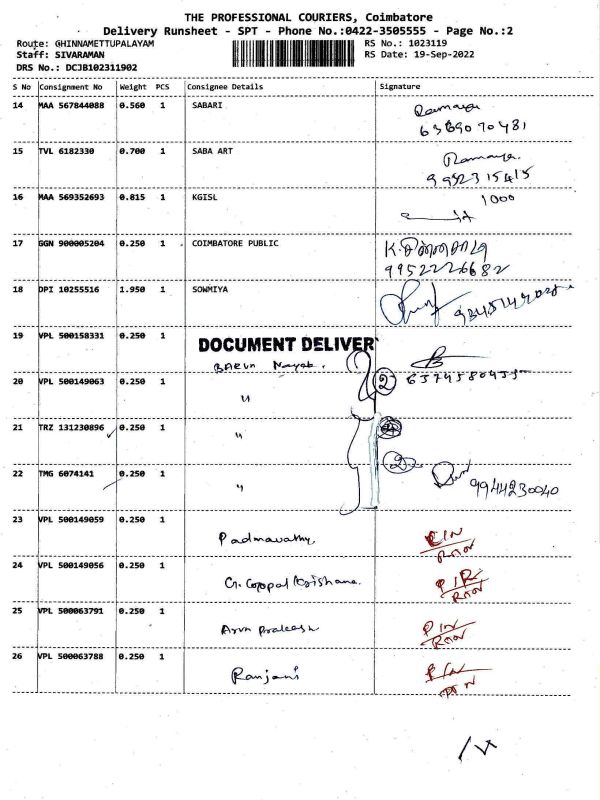 THE PROFESSIONAL COURIERS, Coimbatore
Delivery Runsheet - SPT - Phone No.:0422-3505555 - Page No.:2
Route: GHINNAMETTUPALAYAM RS No.: 1023119
Staff: SIVARAMAN RS Date: 19-Sep-2022
DRS No.: DCJB102311902
S No Consignment No Weight PCS Consignee Details Signature
14 MAA 567844088 0.560 1 SABARI Ramaya
6369070481
15 TVL 6182330 0.700 1 SABA ART Ramaya.
9952315415
16 MAA 569352693 0.815 1 KGISL 1000
17 GGN 900005204 0.250 1 COIMBATORE PUBLIC
9952226682
18 DPI 10255516 1.950 1 SOWMIYA
19 VPL 500158331 0.250 1 DOCUMENT DELIVER
20 VPL 500149063 0.250 1 "
2
21 TRZ 131230896 0.250 1 "
22 TMG 6074141 0.250 1 "
2
9944230040
23 VPL 500149059 0.250 1 Padmavathy.
24 VPL 500149056 0.250 1 G. Gopal Krishana.
25 VPL 500063791 0.250 1 Arun prakash
26 VPL 500063788 0.250 1 Ranjani